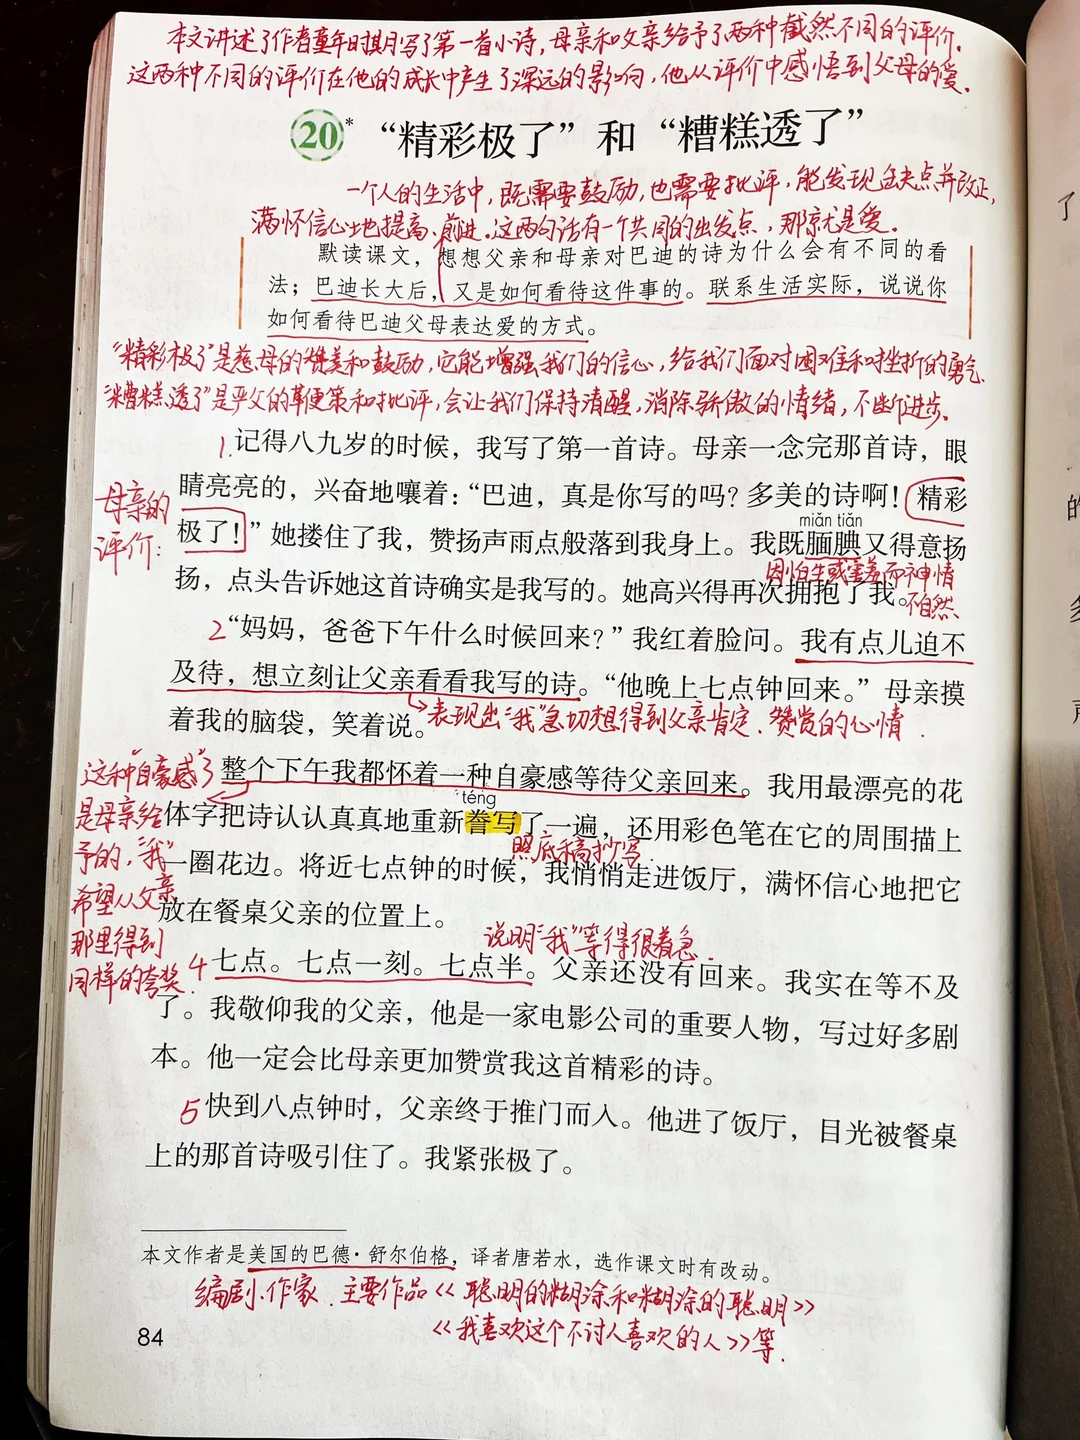 本文讲述了作者童年时期写了第一首小诗，母亲和父亲给予了两种截然不同的评价。
这两种不同的评价在他的成长中产生了深远的影响，他从评价中感悟到父母的爱。
20* “精彩极了”和“糟糕透了”
一个人的生活中，既需要鼓励，也需要批评，能发现缺点并改正，
满怀信心地提高、前进。这两句话有一个共同的出发点，那就是爱。
默读课文，想想父亲和母亲对巴迪的诗为什么会有不同的看
法；巴迪长大后，又是如何看待这件事的。联系生活实际，说说你
如何看待巴迪父母表达爱的方式。
“精彩极了”是慈母的赞美和鼓励，它能增强我们的信心，给我们面对困难和挫折的勇气。
“糟糕透了”是严父的鞭策和批评，会让我们保持清醒，消除骄傲的情绪，不断进步。
1.记得八九岁的时候，我写了第一首诗。母亲一念完那首诗，眼
睛亮亮的，兴奋地嚷着：“巴迪，真是你写的吗？多美的诗啊！精彩
母亲的
评价：
miǎn tiǎn
极了！”她搂住了我，赞扬声雨点般落到我身上。我既腼腆又得意扬
因怕生或害羞而神情
不自然
扬，点头告诉她这首诗确实是我写的。她高兴得再次拥抱了我。
2“妈妈，爸爸下午什么时候回来？”我红着脸问。我有点儿迫不
及待，想立刻让父亲看看我写的诗。“他晚上七点钟回来。”母亲摸
着我的脑袋，笑着说。
表现出“我”急切想得到父亲肯定、赞赏的心情.
这种“自豪感”
是母亲给
予的，“我”
希望从父亲
那里得到
同样的夸奖.
3 整个下午我都怀着一种自豪感等待父亲回来。我用最漂亮的花
téng
体字把诗认认真真地重新誊写了一遍，还用彩色笔在它的周围描上
照底稿抄写.
一圈花边。将近七点钟的时候，我悄悄走进饭厅，满怀信心地把它
放在餐桌父亲的位置上。
说明“我”等得很着急.
4七点。七点一刻。七点半。父亲还没有回来。我实在等不及
了。我敬仰我的父亲，他是一家电影公司的重要人物，写过好多剧
本。他一定会比母亲更加赞赏我这首精彩的诗。
5快到八点钟时，父亲终于推门而入。他进了饭厅，目光被餐桌
上的那首诗吸引住了。我紧张极了。
本文作者是美国的巴德·舒尔伯格，译者唐若水，选作课文时有改动。
编剧、作家.主要作品<<聪明的糊涂和糊涂的聪明>>
<<我喜欢这个不讨人喜欢的人>>等.
84